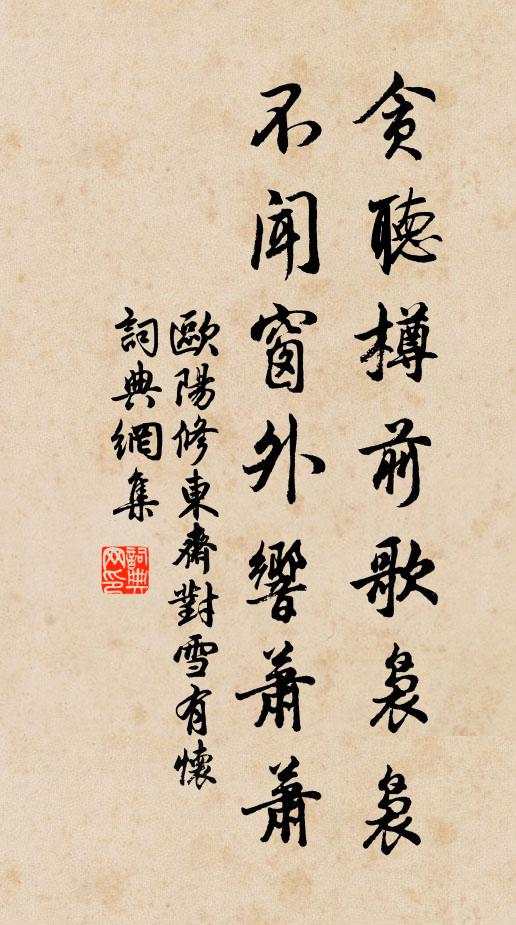 貪聽樽前歌裊裊
不聞窗外響蕭蕭
歐陽修東齋對雪有懷
詞典網集
詞典网印